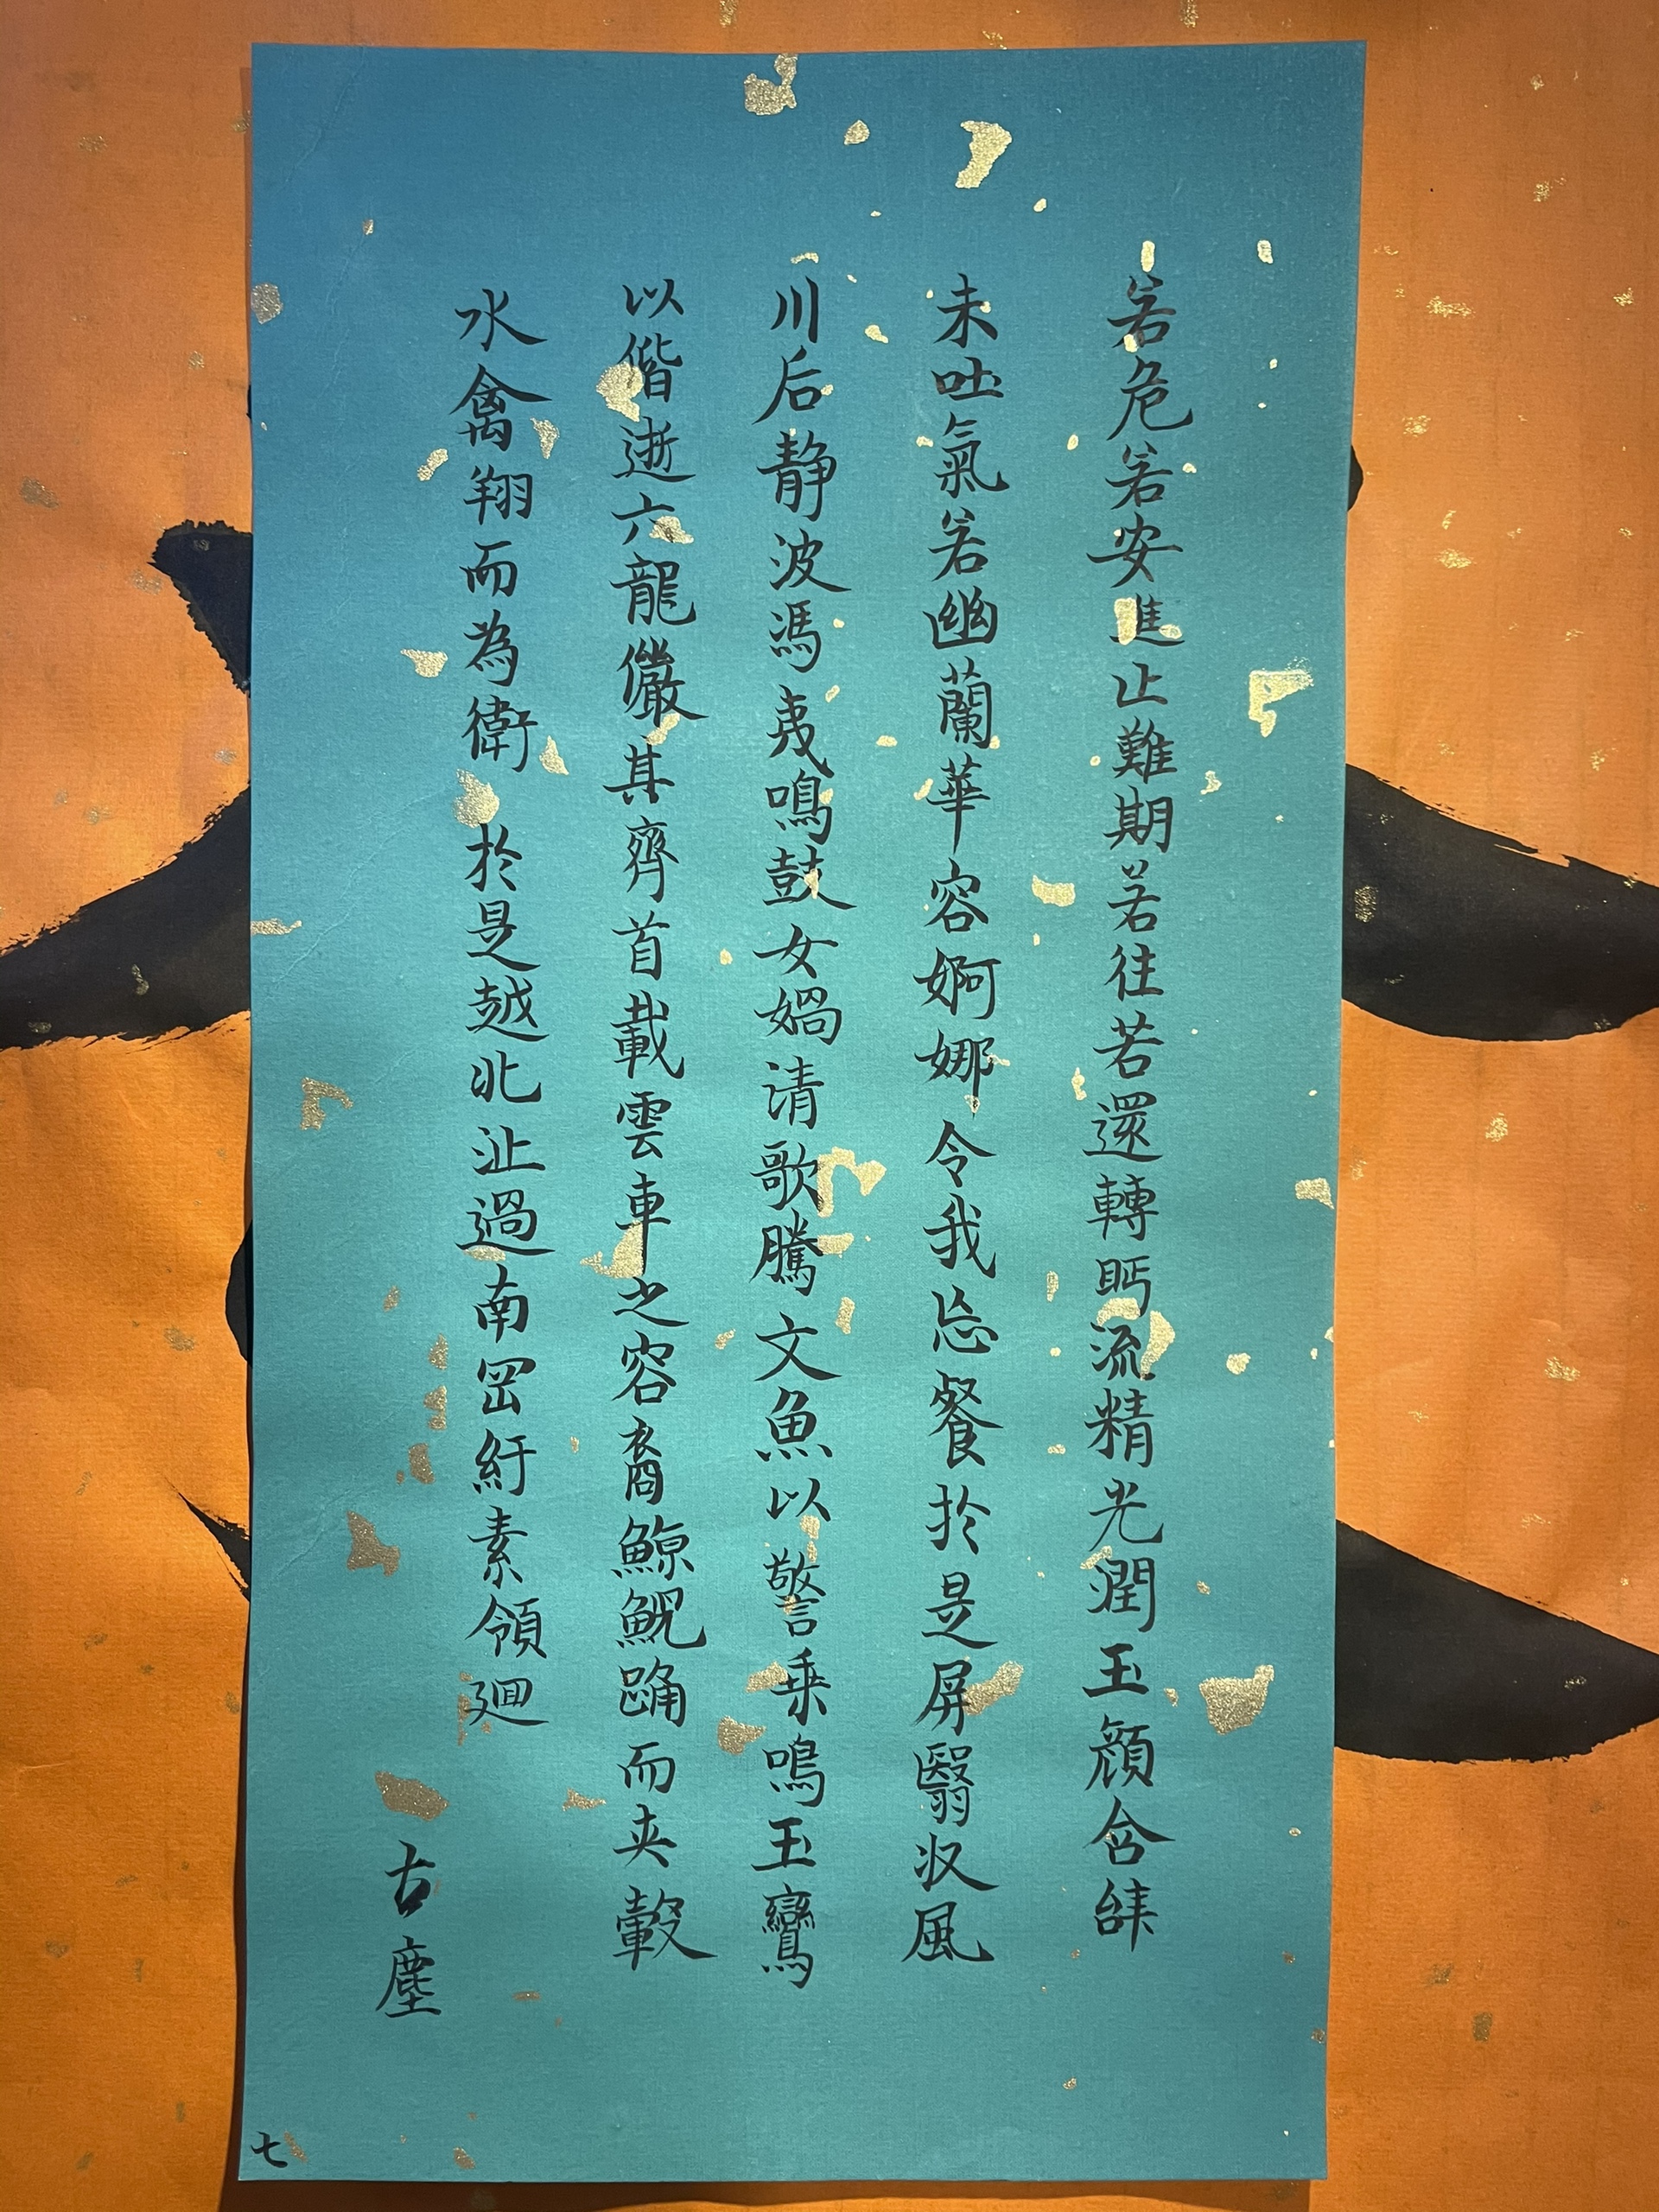 若危若安進止難期若往若還轉眄流精光潤玉顏含辞
未吐氣若幽蘭華容婀娜令我忘餐於是屏翳收風
川后静波馮夷鳴鼓女媧清歌騰文魚以警乗鳴玉鸞
以偕逝六龍儼其齊首載雲車之容裔鯨鯢踴而夾轂
水禽翔而為衛於是越北沚過南岡紆素領廻
古塵
七